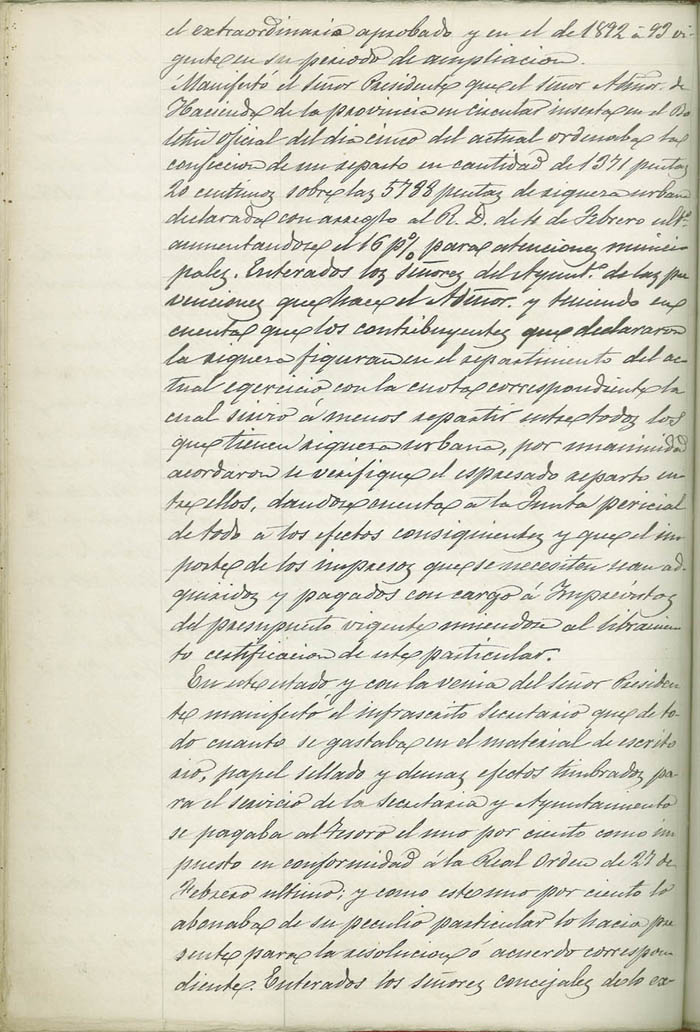 el extraordinario aprobado y en el de 1892 á 93 vi-
gente en su periodo de ampliacion.
Manifestó el señor Presidente que el señor Admor. de
Hacienda de la provincia en circular inserta en el Bo
letin oficial del dia cinco del actual ordenaba la
confeccion de un reparto en cantidad de 1371 pesetas
20 centimos sobre las 5788 pesetas de riqueza urbana
declarada con arreglo al R. D. de 4 de Febrero ultº.
aumentandose el 16 p% para atenciones munici
pales. Enterados los Señores del Ayuntº. de las pre
venciones que hace el Admor. y teniendo en
cuenta que los contribuyentes que declararon
la riqueza figuran en el repartimiento del ac-
tual egercicio con la cuota correspondiente la
cual sirvió á menos repartir entre todos los
que tienen riqueza urbana, por unanimidad
acordaron se verifique el espresado reparto en-
tre ellos, dandose cuenta á la Junta pericial
de todo a los efectos consiguientes y que el im
porte de los impresos que se necesiten sean ad-
quiridos y pagados con cargo á Imprevistos
del presupuesto vigente uniendose al libramien
to certificacion de este particular.
En este estado y con la venia del señor Presiden
te manifestó el infrascrito Secretario que de to-
do cuanto se gastaba en el material de escrito
rio, papel sellado y demas efectos timbrados pa-
ra el servicio de la Secretaria y Ayuntamiento
se pagaba al Tesoro el uno por ciento como im
puesto en conformidad á la Real Orden de 27 de
Febrero ultimo; y como este uno por ciento lo
abonaba de su peculio particular lo hacia pre
sente para la resolucion ó acuerdo correspon
diente. Enterados los señores concejales de lo ex-